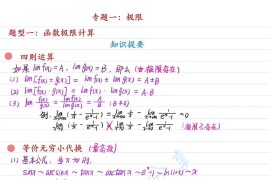 专题一：极限
题型一：函数极限计算
知识提要
四则运算
如果 lim f(x)=A, lim g(x)=B, 那么 (☆极限存在)
(1) lim[f(x)±g(x)] = lim f(x) ± lim g(x) = A±B
(2) lim[f(x)·g(x)] = lim f(x)·lim g(x) = A·B
(3) lim f(x)/g(x) = lim f(x)/lim g(x) = A/B (B≠0)
例:
(极限不存在)
等价无穷小代换 (最高效)
(1) 基本公式: 当 x→0 时,
sinx ~ arcsinx ~ tanx ~ arctanx ~ eˣ-1 ~ ln(1+x) ~ x